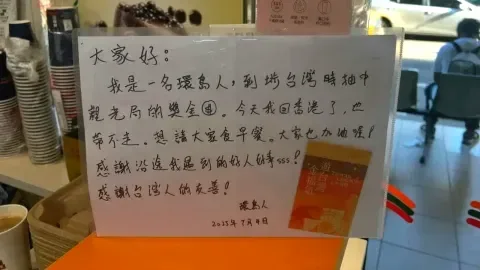 大家好：
我是一名環島人，到埗台灣時抽中
觀光局的獎金。今天我回香港了，也
帶不走。想請大家食早餐。大家也加油喔！
感謝沿途我遇到的好人好事sss！
感謝台灣人的友善！
環島人
2023年7月4日
遊台灣